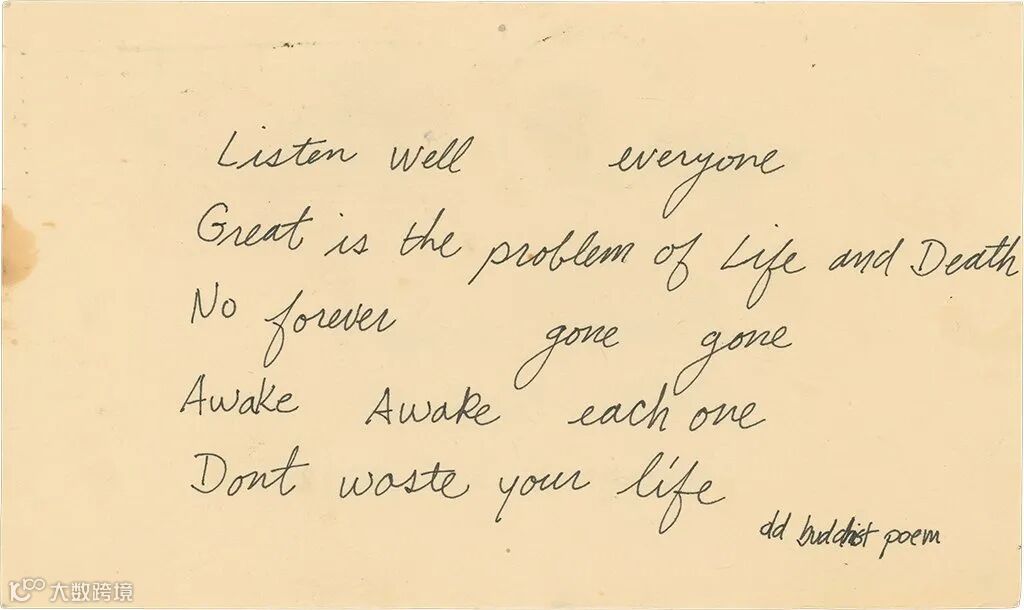 Listen well everyone
Great is the problem of Life and Death
No forever gone gone
Awake Awake each one
Dont waste your life
dd buddhist poem
大数跨境